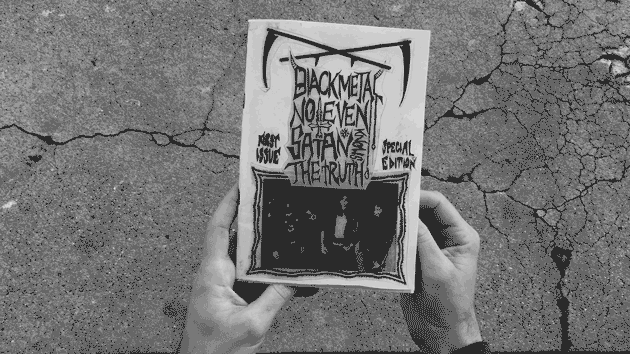 BLACKMETAL
NOT EVEN
SATAN KNOWS
THE TRUTH!
FIRST
ISSUE
SPECIAL
EDITION